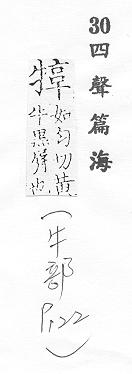 30四聲篇海
犉
如匀切黃
牛黑脣也
(牛部
P.122)